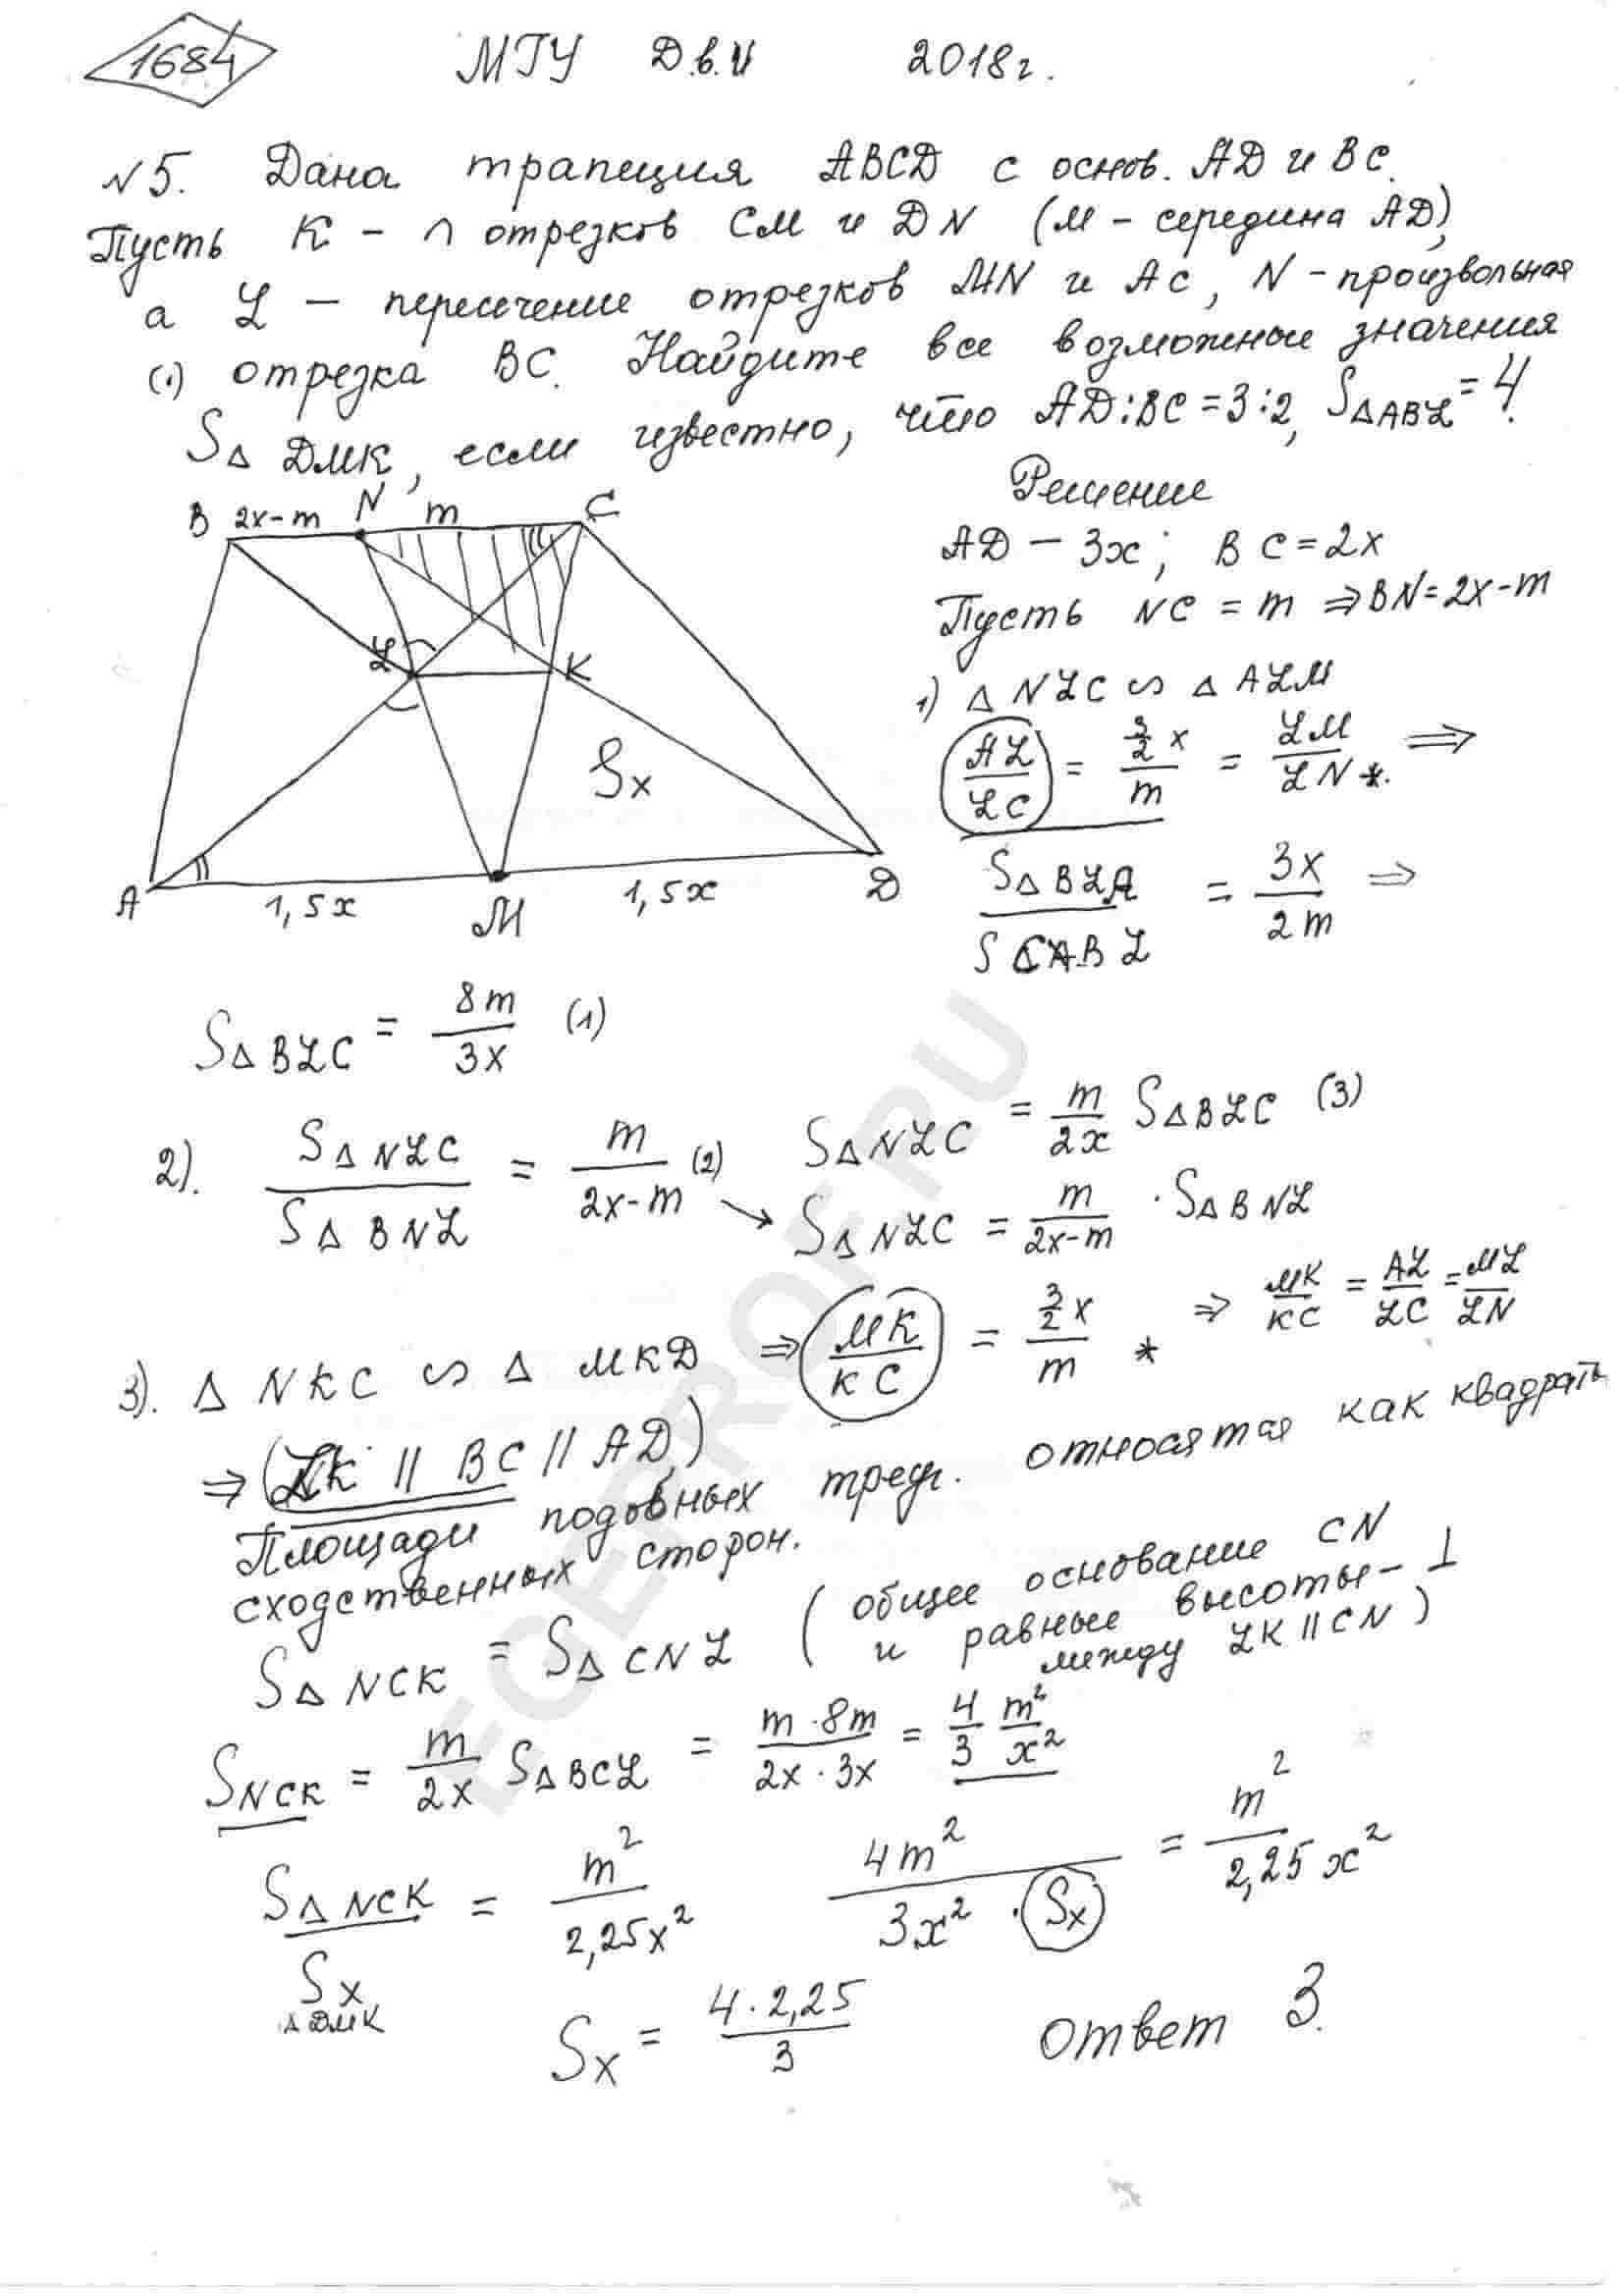 1684 МГУ Д.в.и 2018г.
№5. Дана трапеция ABCD с основ. AD и BC.
Пусть K - ∩ отрезков CM и DN (M - середина AD),
а L — пересечение отрезков MN и AC, N - произвольная
(·) отрезка BC. Найдите все возможные значения
S△ DMK, если известно, что AD:BC=3:2, S△ABL=4.
Решение
B 2x-m N m C
AD — 3x; BC=2x
Пусть NC = m ⇒ BN=2x-m
L K
1) △ NLC ∽ △ ALM
AL/LC = 3/2 x / m = LM/LN *. ⇒
Sx
S△BLA / S△CBL = 3x/2m ⇒
A 1,5x M 1,5x D
S△BLC = 8m/3x (1)
2). S△NLC / S△BNL = m/(2x-m) (2) S△NLC = m/2x S△BLC (3)
S△NLC = m/(2x-m) · S△BNL
3). △ NKC ∽ △ MKD ⇒ MK/KC = 3/2 x / m * ⇒ MK/KC = AL/LC = ML/LN
⇒ (LK || BC || AD)
Площади подобных треуг. относятся как квадраты
сходственных сторон.
S△NCK = S△CNL (общее основание CN
и равные высоты - ⊥
между LK||CN)
SNCK = m/2x S△BCL = m·8m / 2x·3x = 4/3 m²/x²
S△NCK / Sx △DMK = m²/2,25x² 4m² / 3x² · Sx = m² / 2,25x²
Sx = 4·2,25 / 3 ответ 3.
EGEPROF.RU